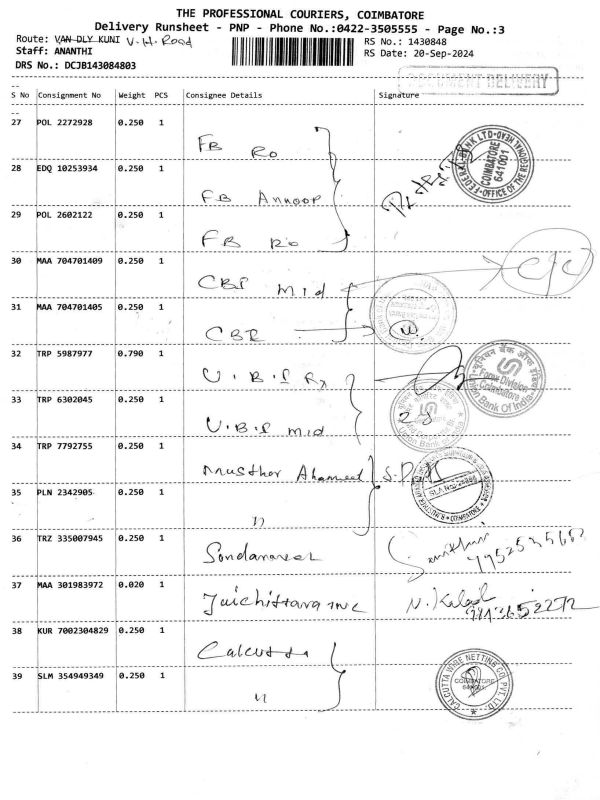 THE PROFESSIONAL COURIERS, COIMBATORE
Delivery Runsheet - PNP - Phone No.:0422-3505555 - Page No.:3
Route: VAN DLY KUNI V.H. Road
RS No.: 1430848
Staff: ANANTHI
RS Date: 20-Sep-2024
DRS No.: DCJB143084803
DOCUMENT DELIVERY
S No Consignment No Weight PCS Consignee Details Signature
27 POL 2272928 0.250 1 FB Ro
28 EDQ 10253934 0.250 1 FB Annoop
29 POL 2602122 0.250 1 FB Ro
FEDERAL BANK LTD-OFFICE OF THE REGIONAL HEAD
COIMBATORE
641001
30 MAA 704701409 0.250 1 CBI mid
31 MAA 704701405 0.250 1 CBI
32 TRP 5987977 0.790 1 U.B.I Fx
यूनियन बैंक ऑफ इंडिया
Forex Division
Coimbatore
Union Bank Of India
33 TRP 6302045 0.250 1 U.B.I mid
34 TRP 7792755 0.250 1 Musther Ahameed
35 PLN 2342905 0.250 1 "
36 TRZ 335007945 0.250 1
37 MAA 301983972 0.020 1 N.
38 KUR 7002304829 0.250 1 Calcutta
39 SLM 354949349 0.250 1 "
CALCUTTA WIRE NETTING CO. PVT. LTD.
COIMBATORE
641001